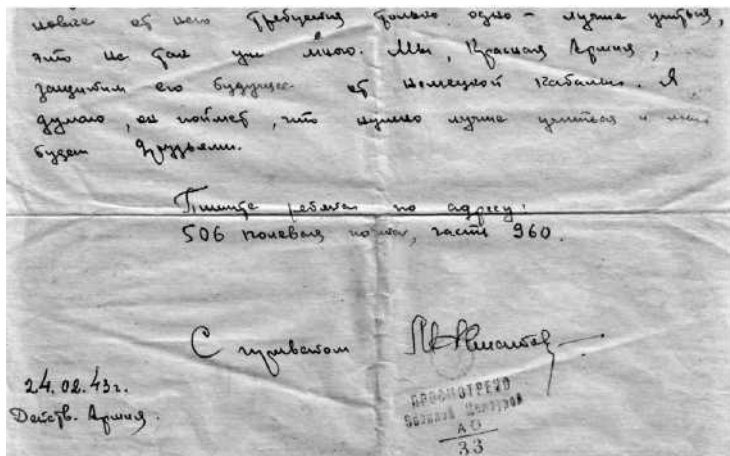 от него требуется только одно - лучше учиться,
это не так уж много. Мы, Красная Армия,
защитим его будущее от немецкой кабалы. Я
думаю, он поймет, что нужно лучше учиться и мы
будем друзьями.
Пишите ребята по адресу:
506 полевая почта, часть 960.
С приветом
24.02.43г.
Действ. Армия.
ПРОСМОТРЕНО
Военной Цензурой
АО
33